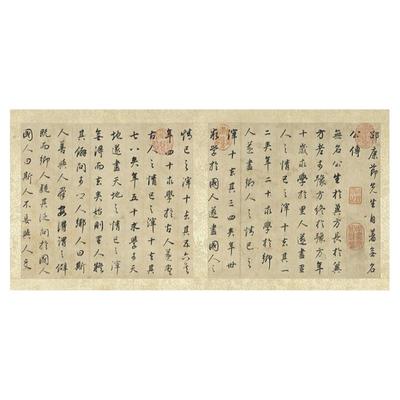 邵康節先生自著無名
公傳
無名公生於冀方長於冀
方老於豫方終於豫方年
十歲求學於里人遂盡里
人之情已之滓十去其一
二矣年二十求學於鄉
人遂盡鄉人之情已之
滓十去其三四矣年卅
求學於國人遂盡國人之
情已之滓十去其五六矣
年四十求學於古人遂盡
古人之情已之滓十去其
七八矣年五十求學于天
地遂盡天地之情已之滓
無得而去矣始則里人疑
其僻問于鄉人鄉人曰斯
人善與人群安得謂之僻
既而鄉人疑其泛問於國人
國人曰斯人不妄與人交